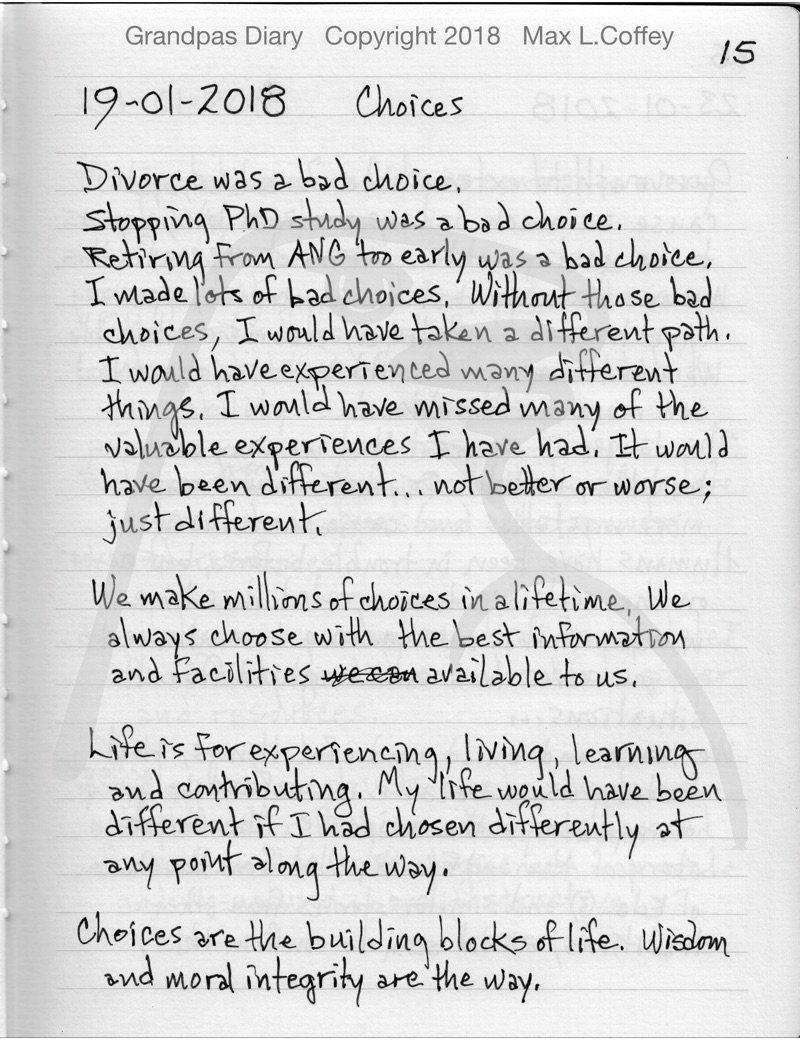 Grandpas Diary Copyright 2018 Max L.Coffey
15
19-01-2018 Choices
Divorce was a bad choice.
Stopping PhD study was a bad choice.
Retiring from ANG too early was a bad choice.
I made lots of bad choices. Without those bad
choices, I would have taken a different path.
I would have experienced many different
things. I would have missed many of the
valuable experiences I have had. It would
have been different... not better or worse;
just different.
We make millions of choices in a lifetime. We
always choose with the best information
and facilities we can available to us.
Life is for experiencing, living, learning
and contributing. My life would have been
different if I had chosen differently at
any point along the way.
Choices are the building blocks of life. Wisdom
and moral integrity are the way.